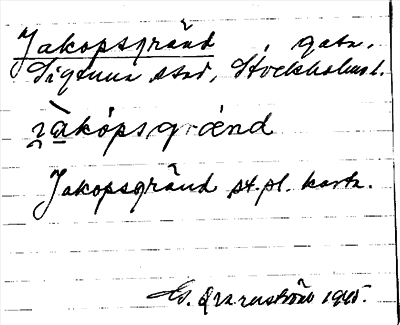 Jakopsgränd gata.
Sigtuna stad, Stockholms l.
jàkópsgrénd
Jakopsgränd st.pl. karta.
1945.